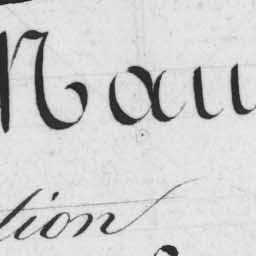 Nau
tion